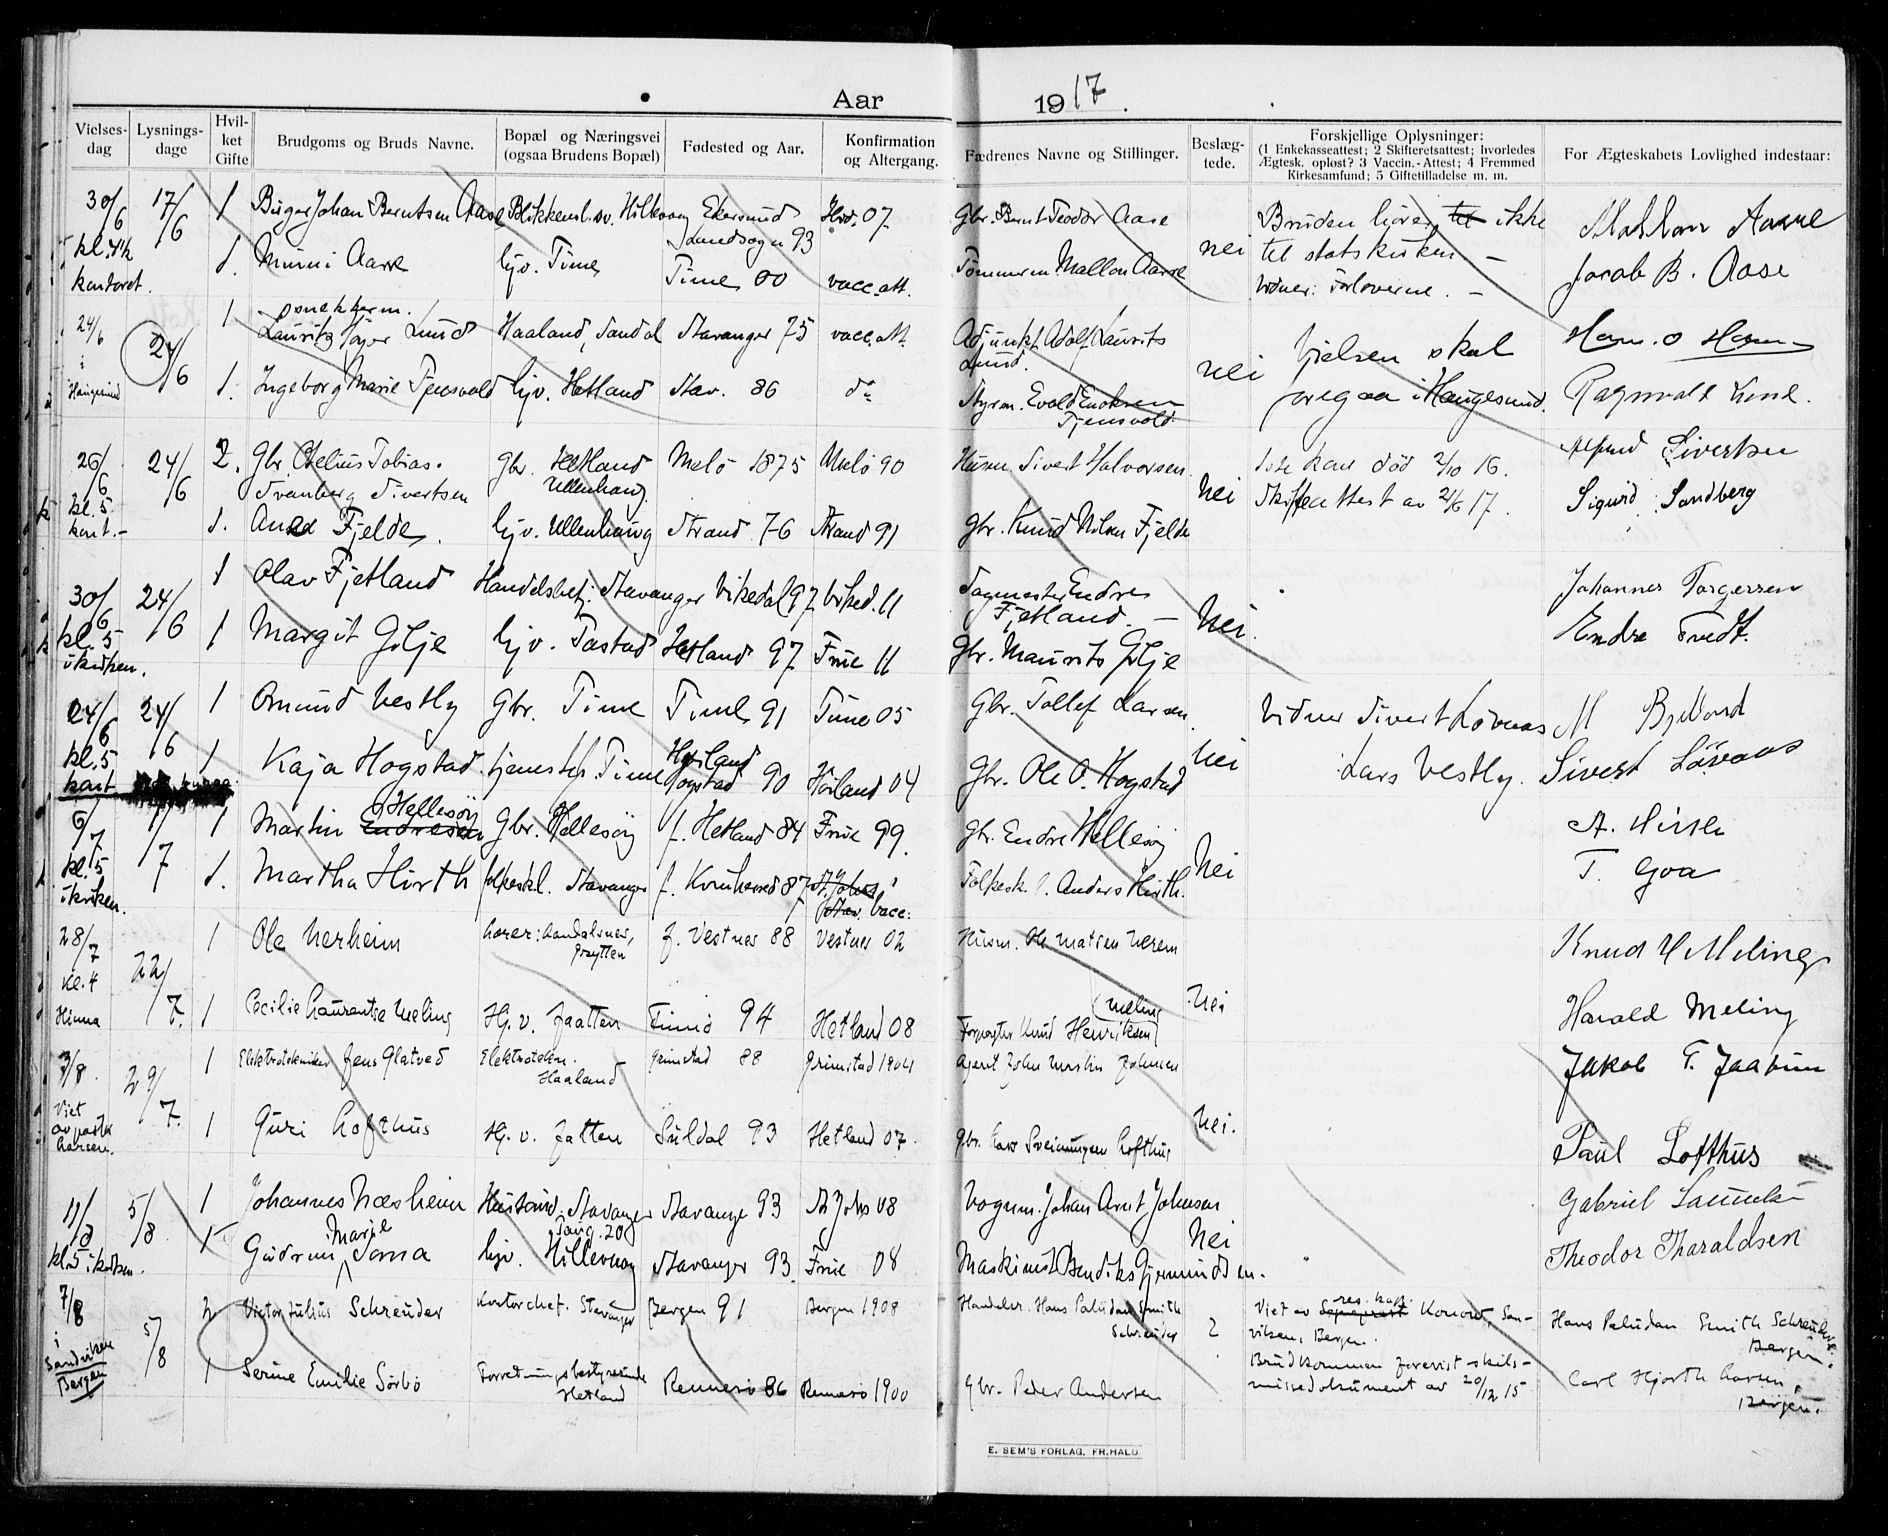 Aar
1917.
Vielses-dag
Lysnings-dage
Hvil-ket Gifte
Brudgoms og Bruds Navne.
Bopæl og Næringsvei (ogsaa Brudens Bopæl)
Fødested og Aar.
Konfirmation og Altergang.
Fædrenes Navne og Stillinger.
Beslæg-tede.
Forskjellige Oplysninger:
(1 Enkekasseattest; 2 Skifteretsattest; hvorledes
Ægtesk. opløst? 3 Vaccin.-Attest; 4 Fremmed
Kirkesamfund; 5 Giftetilladelse m. m.
For Ægteskabets Lovlighed indestaar:
30/6 17/6 1 Birger Johan Berntsen Aase Blikkensl. sv. Hillevaag Ekersund 07 Gbr. Bernt Teodor Aase Bruden hører til ikke
Landsogn 93
kl. 4½ 1. Minni Aase hjv. Time Time 00 vacc. att. Tømmerm. Mallon Aasse nei til statskirken – Jacob B. Aase
kontoret. Vidner: Forloverne. –
24/6 24/6 1 snekkerm.
Lauritz Høyer Lund Haaland, Sandal Stavanger 75 vacc. att. Adjunkt Adolf Laurits
Lund. nei Vielsen skal
i Haugesund 1. Ingeborg Marie Tjensvold hjv. Hetland Stav. 86 do Styrm. Evald Enoksen foregaa i Haugesund. Ragnvald Lund.
Tjensvold.
26/6 24/6 2. Gbr. Obelius Tobias Gbr. Hetland Melø 1875 Melø 90 Husm. Sivert Halvorsen 1ste kone død 2/10 16. Sivertsen
Svanberg Sivertsen Ullenhaug nei Skifteattest av 21/6 17. Sigurd Sandberg
kl. 5 kont. – 1. Anna Fjelde. hjv. Ullenhaug Strand 76 Strand 91 Gbr. Knud Nilsen Fjelde
30/6 24/6 1 Olav Fjetland Handelsbetj. Stavanger Vikedal 97 Viked. 11 Sagmester Endre Johannes Torgersen
Fjetland. – Nei. Endre Tvedt.
kl. 5 i kirken. 1 Margit Gilje hjv. Tastad Hetland 97 Frue 11 Gbr. Maurits Gilje
24/6 24/6 1 Omund Vestly Gbr. Time Time 91 Time 05 Gbr. Tollef Larsen Vidner Sivert Løvaas M
kl. 5 kont 1 Kaja Hogstad tjenestep. Time Høiland
Hogstad 90 Høiland 04 Gbr. Ole O. Hogstad Nei Lars Vestly. Sivert Løvaas
6/7 1/7 1 Martin Endresen Hellesøy Gbr. Hellesøy f. Hetland 84 Frue 99. Gbr. Endre Hellesøy
kl. 5 i kirken. 1. Martha Hirth folkeskl. Stavanger f. Kvinherred 87 St. Johs Folkeskl. Anders Hirth. Nei T. Goa
Stav. Vacc.
28/7 22/7. 1 Ole Nerheim Lærer: Aandalsnes, f. Vestnes 88 Vestnes 02 Husm. Ole Matsen Nerem Knud H Meling
Grytten
kl. 4 Hinna 1 Cecilie Laurentse Meling Hj. v. Jaatten Finnø 94 Hetland 08 Forpagter Knud Henriksen (Meling) Nei Harald Meling
3/8. 29/7. 1 Elektrotekniker Jens Glatved Elektrotekn. Grimstad 88 Grimstad 1904 Agent John Martin Johnsen Jakob T. Jaatun
Haaland
Viet av pastor Larsen. 1 Guri Lofthus Hj. v. Jatten Suldal 93 Hetland 07. Gbr. Lars Sveinungsen Lofthus Nei. Paul Lofthus
11/8 5/8 1 Johannes Næsheim Stavanger Stavanger 93 St Johs 08 Vognm. Johan Arnt Johnsen Gabriel
kl. 5 i kirken. 1 Gudrun Marie Soma hjv. Hillevaag Stavanger 93 Frue 08 Maskinist Bendiks Gjermundsen. Nei Theodor Tharaldsen
7/8 5/8 2 Victor Julius Schreuder Kontorchef. Stavanger Bergen 91 Bergen 1908 Handelsr. Hans Paludan Smith Schreuder ? Viet av Sogneprest res. kap. Konow San-
viken, Bergen. Hans Paludan Smith Schreuder. Bergen.
i Sandviken Bergen 1 Serine Emilie Sørbø Forretningsbestyrerinde Rennesø 86 Rennesø 1900 Gbr. Peder Andersen Brudkommen forevist skils-
Hetland missedokument av 20/12 15 Carl Hjorth Larsen, Bergen.
E. SEM'S FORLAG, FR.HALD